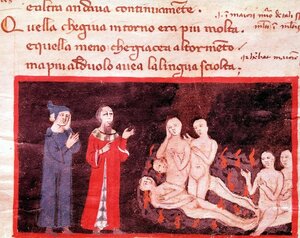 ealtra andaua continuamẽte.
Quella chegiua intorno era piu molta.
equella meno chegiacea altormẽto
ma piu alduolo auea lalingua sciolta.